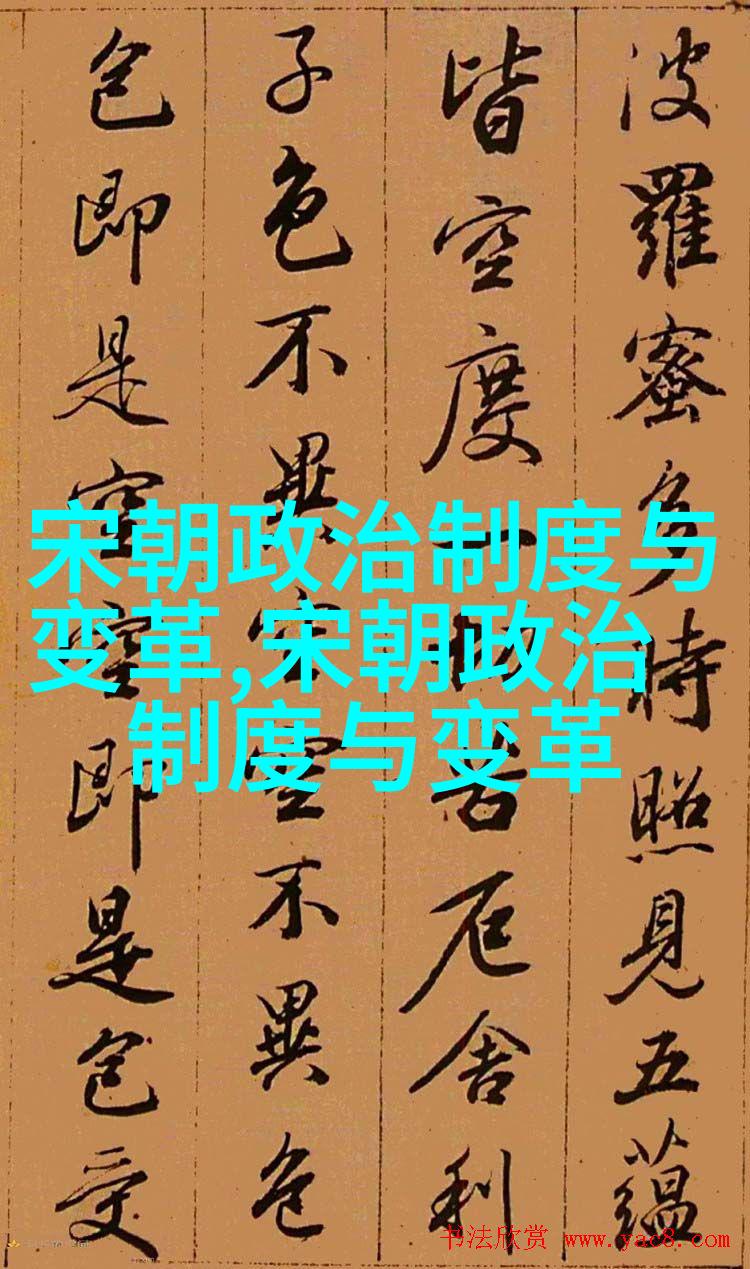 波羅蜜多時照見五蘊
皆空度一切苦厄舍利
子色不異空空不異色
色即是空空即是色受
宋朝政治制度与
变革,宋朝政治
制度与变革
书法欣赏 www.yac8.com